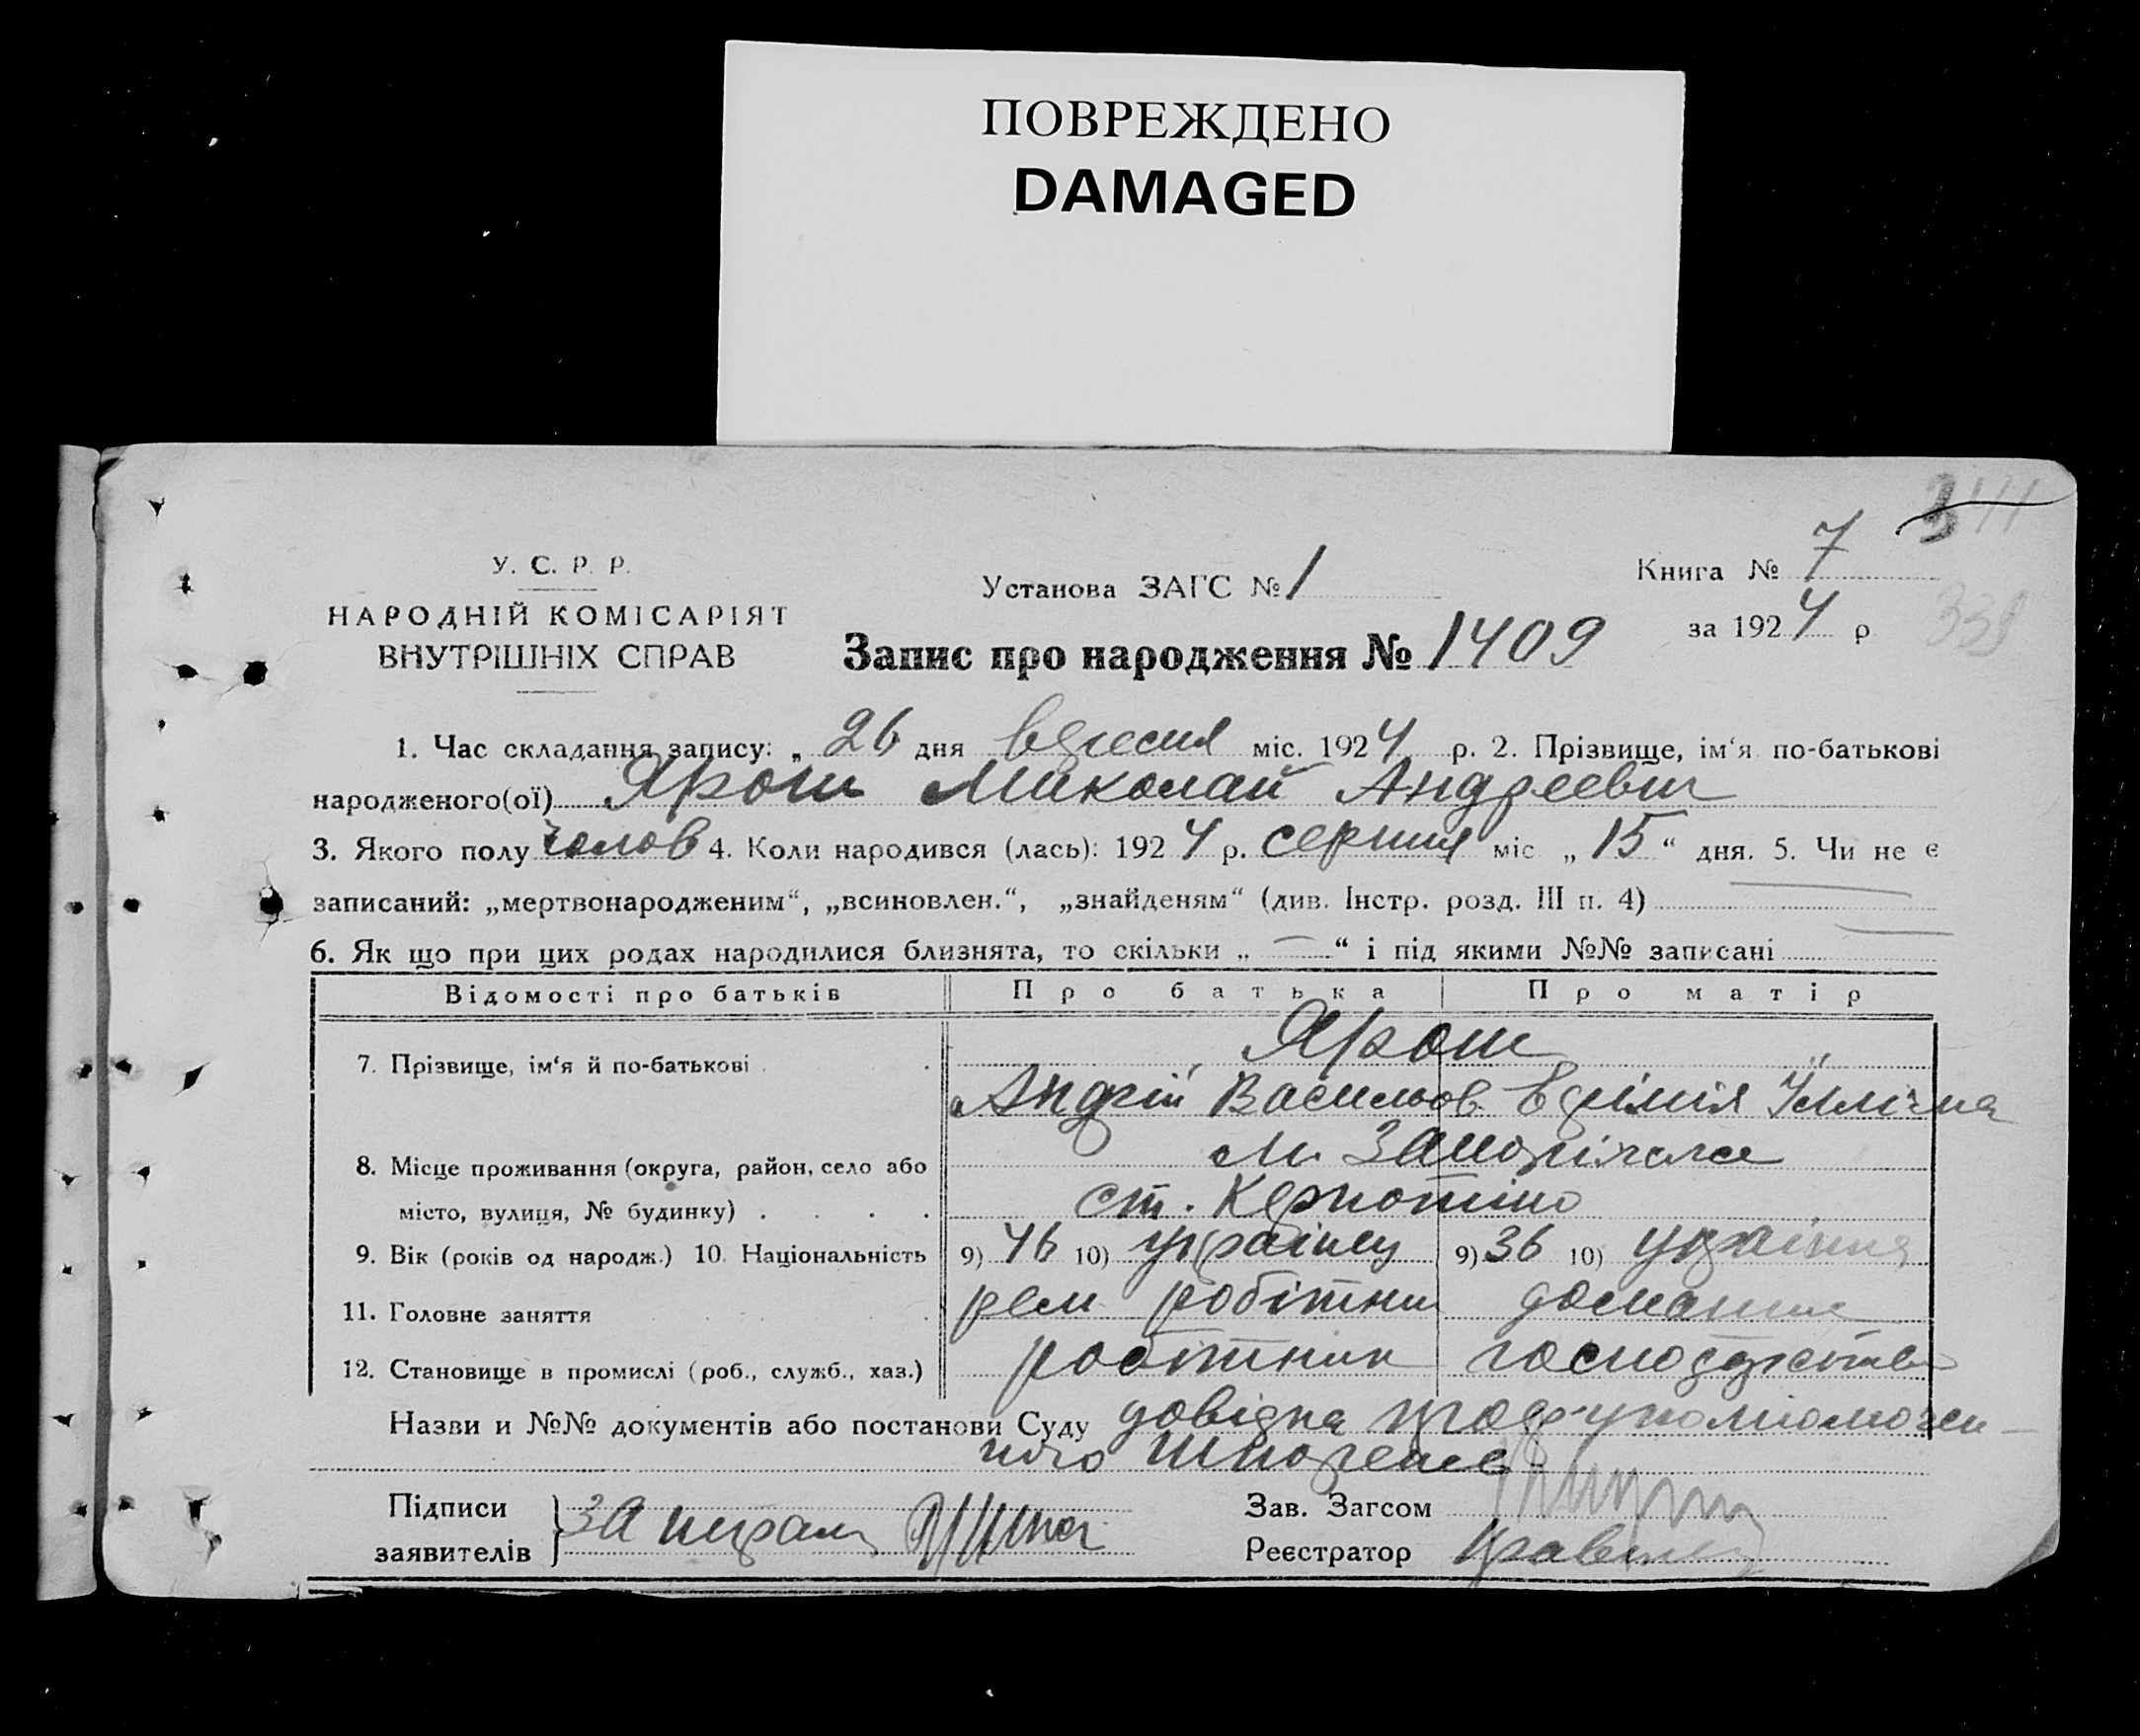 ПОВРЕЖДЕНО
DAMAGED
У. С. Р. Р.
НАРОДНІЙ КОМІСАРІЯТ
ВНУТРІШНІХ СПРАВ
Установа ЗАГС № 1
Книга № 7
за 1924 р
Запис про народження № 1409
1. Час складання запису: „ 26 дня вересня міс. 1924 р. 2. Прізвище, ім‘я по-батькові
народженого(ої) Ярош Миколай Андреевич
3. Якого полу чолов 4. Коли народився (лась): 1924 р. серпня міс „ 15 “ дня. 5. Чи не є
записаний: „мертвонародженим“, „всиновлен.“, „знайденям“ (див. Інстр. розд. III п. 4)
6. Як що при цих родах народилися близнята, то скільки „ — “ і під якими №№ записані
Відомості про батьків Про батька Про матір
7. Прізвище, ім‘я й по-батькові Ярош
Андрій Васильов
8. Місце проживання (округа, район, село або м.
місто, вулиця, № будинку) ст.
9. Вік (років од народж.) 10. Національність 9) 46 10) українец 9) 36 10)
11. Головне заняття рем робітник домашнє
12. Становище в промислі (роб., служб., хаз.) робітник господарство
Назви и №№ документів або постанови Суду довідка
Підписи
заявителів
Зав. Загсом
Реєстратор